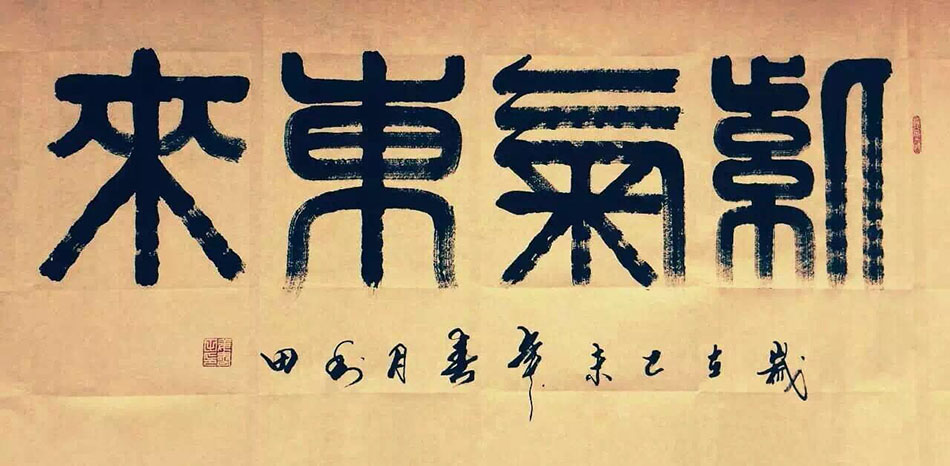 紫氣東來
歲在己未年春月田